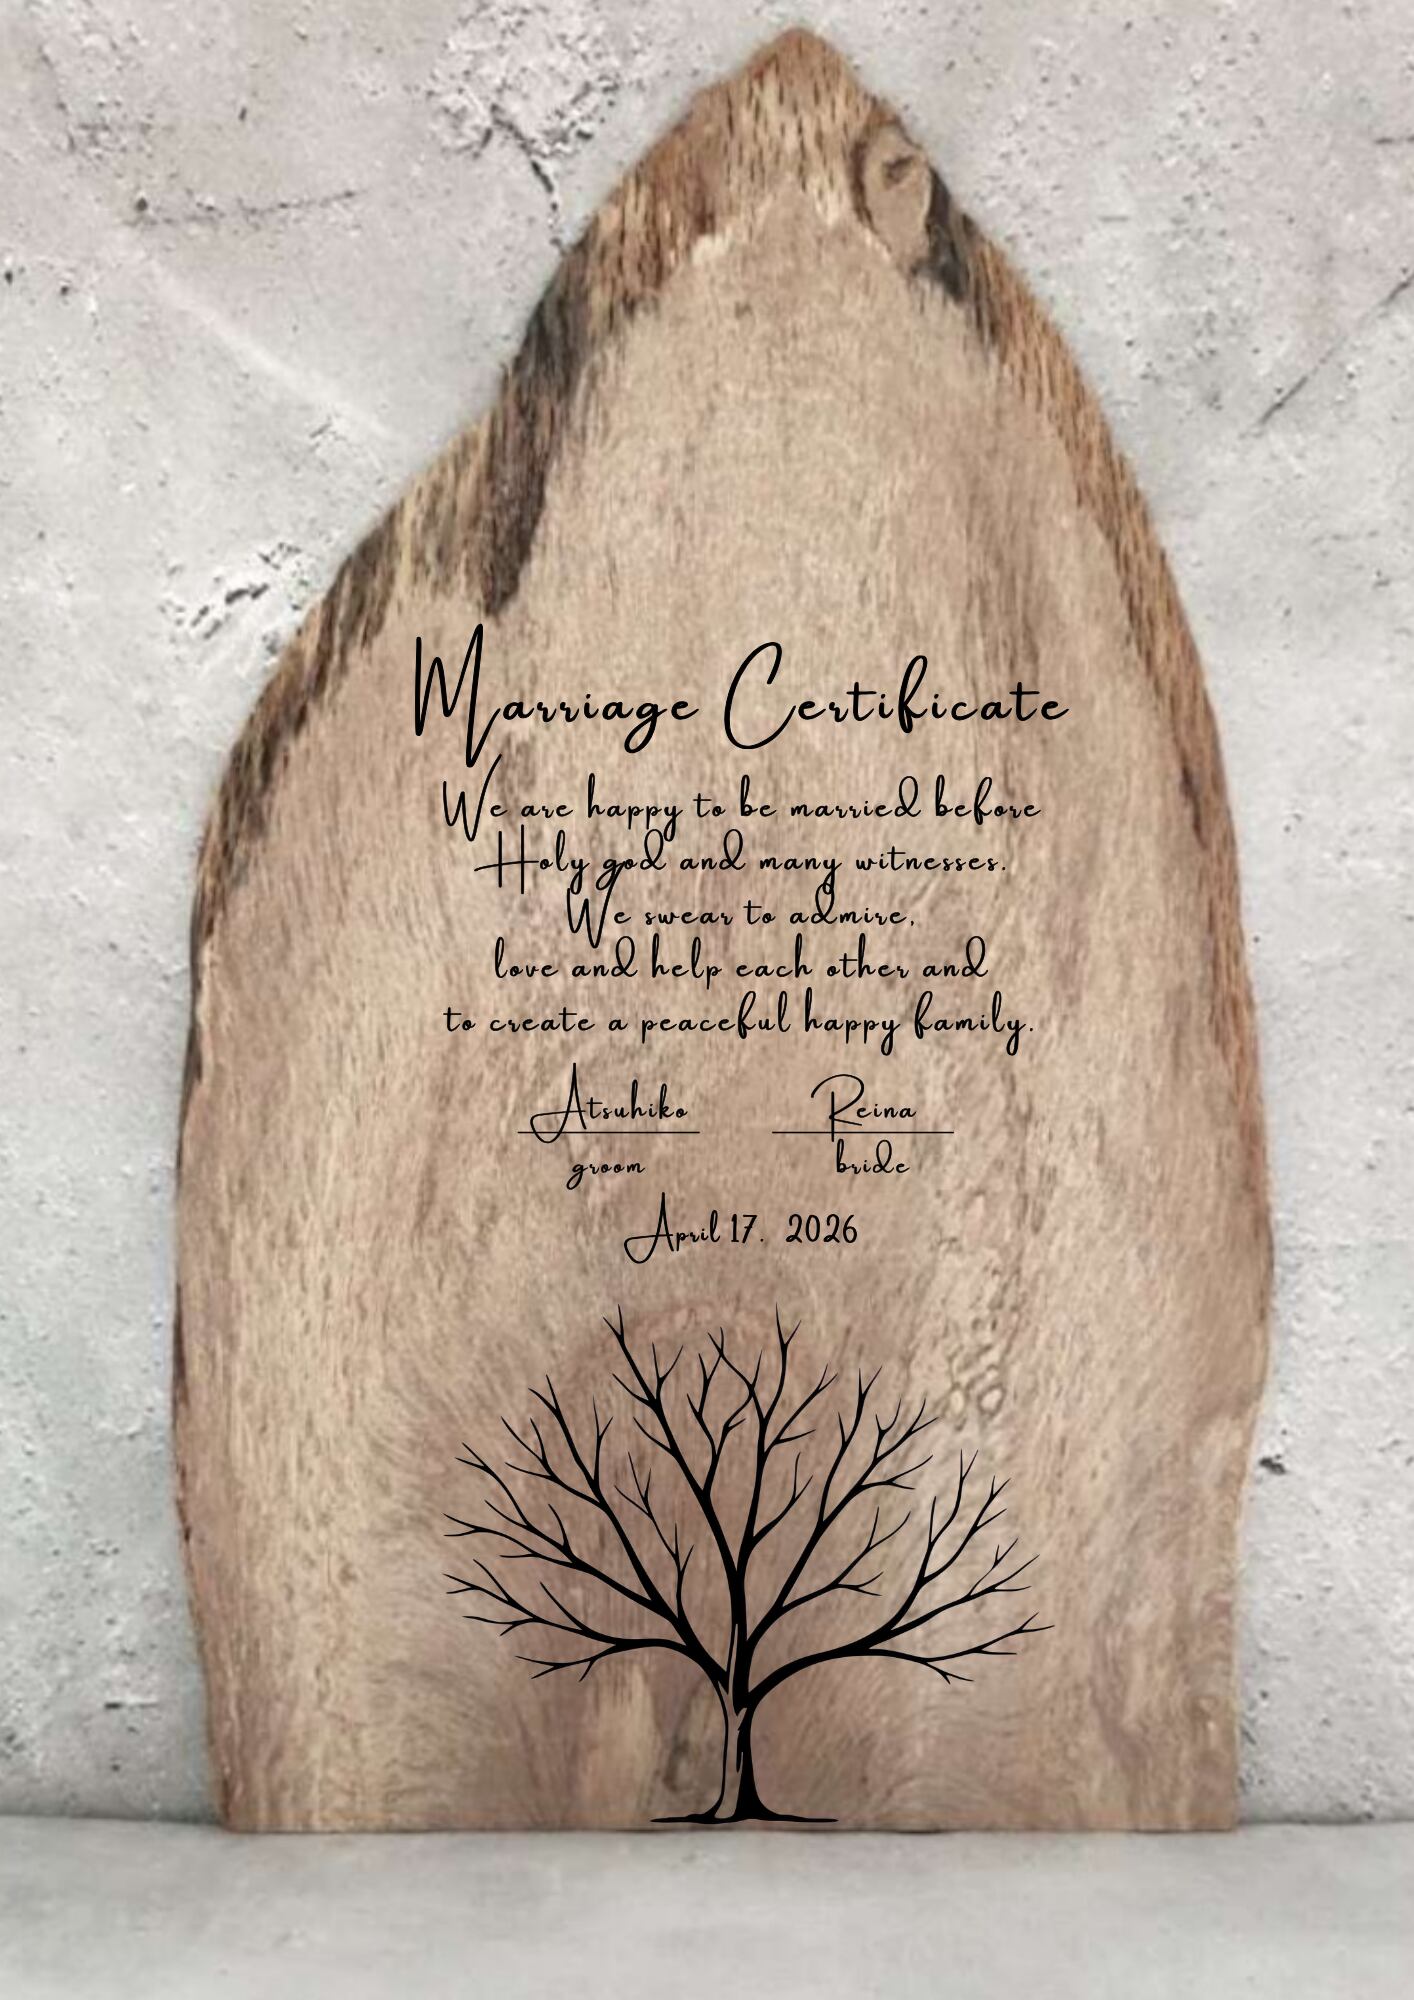 Marriage Certificate
We are happy to be married before
Holy god and many witnesses.
We swear to admire,
love and help each other and
to create a peaceful happy family.
Atsuhiko Reina
groom bride
April 17. 2026